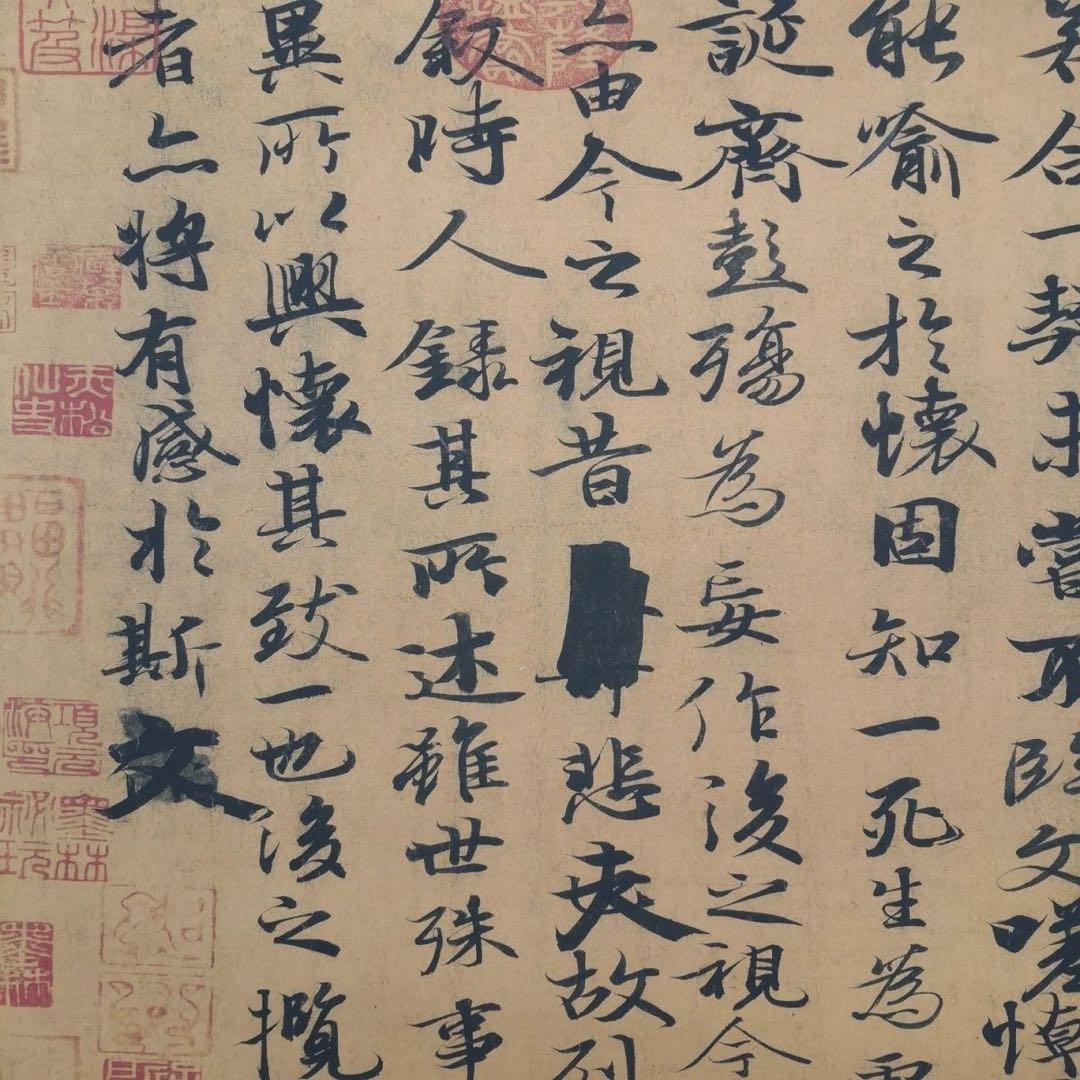 若合一契未嘗不臨文嗟悼
能喻之於懷固知一死生為
誕齊彭殤為妄作後之視今
亦由今之視昔悲夫故列
敘時人錄其所述雖世殊事
異所以興懷其致一也後之攬
者亦將有感於斯文
赤松仙史
墨林秘玩